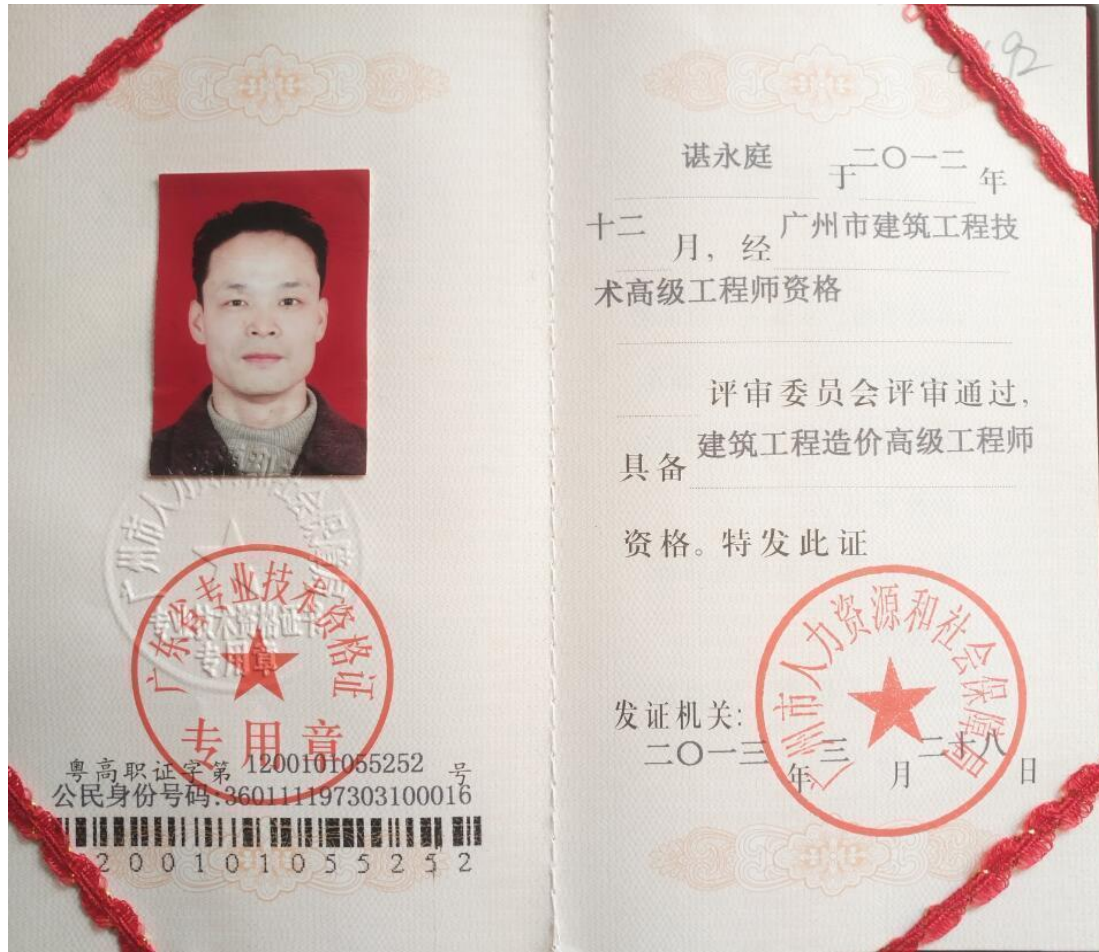 广州市人力资源和社会保障局
专业技术资格证书
专用章
广东省专业技术资格证
专用章
粤高职证字第 1200101055252 号
公民身份号码:360111197303100016
200101055252
谌永庭 于二〇一二年
十二月，经广州市建筑工程技
术高级工程师资格
评审委员会评审通过，
具备建筑工程造价高级工程师
资格。特发此证
广州市人力资源和社会保障局
发证机关:
二〇一三年三月二十八日